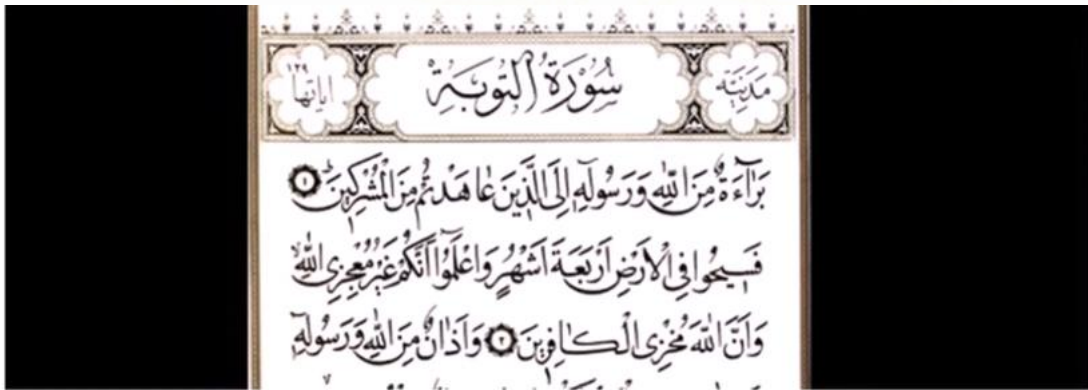 مدنية سُورَةُ التَّوبَةِ اياتها ١٢٩
بَرَآءَةٌ مِنَ اللّٰهِ وَرَسُولِهٖٓ اِلَى الَّذينَ عَاهَدْتُمْ مِنَ الْمُشْرِكينَ ١
فَسيحُوا فِي الْاَرْضِ اَرْبَعَةَ اَشْهُرٍ وَاعْلَمُٓوا اَنَّكُمْ غَيْرُ مُعْجِزِي اللّٰهِ
وَاَنَّ اللّٰهَ مُخْزِي الْكَافِرينَ ٢ وَاَذَانٌ مِنَ اللّٰهِ وَرَسُولِهٖٓ